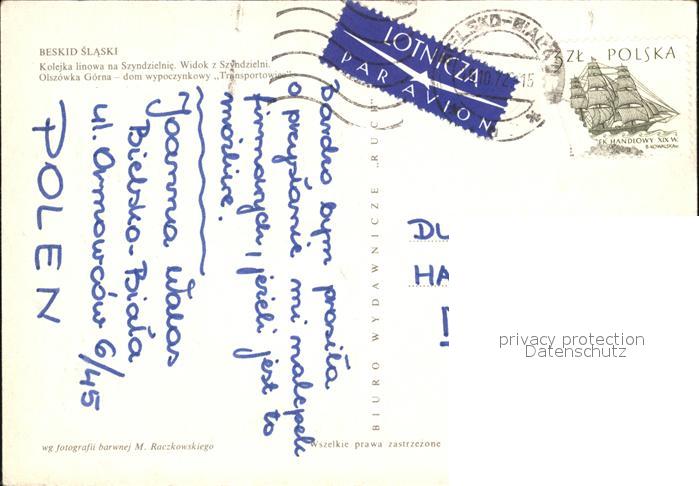 BESKID ŚLĄSKI
Kolejka linowa na Szyndzielnię. Widok z Szyndzielni.
Olszówka Górna – dom wypoczynkowy „Transportowiec”
LOTNICZA
PAR AVION
5 ZŁ POLSKA
STATEK HANDLOWY XIX W.
bardzo bym prosiła
o przysłanie mi nalepek
firmowych, jeżeli jest to
możliwe.
Joanna Walas
Bielsko-Biała
ul. Armowców 6/45
POLEN
BIURO WYDAWNICZE „RUCH”
DU
HA
privacy protection
Datenschutz
wg fotografii barwnej M. Raczkowskiego
Wszelkie prawa zastrzeżone